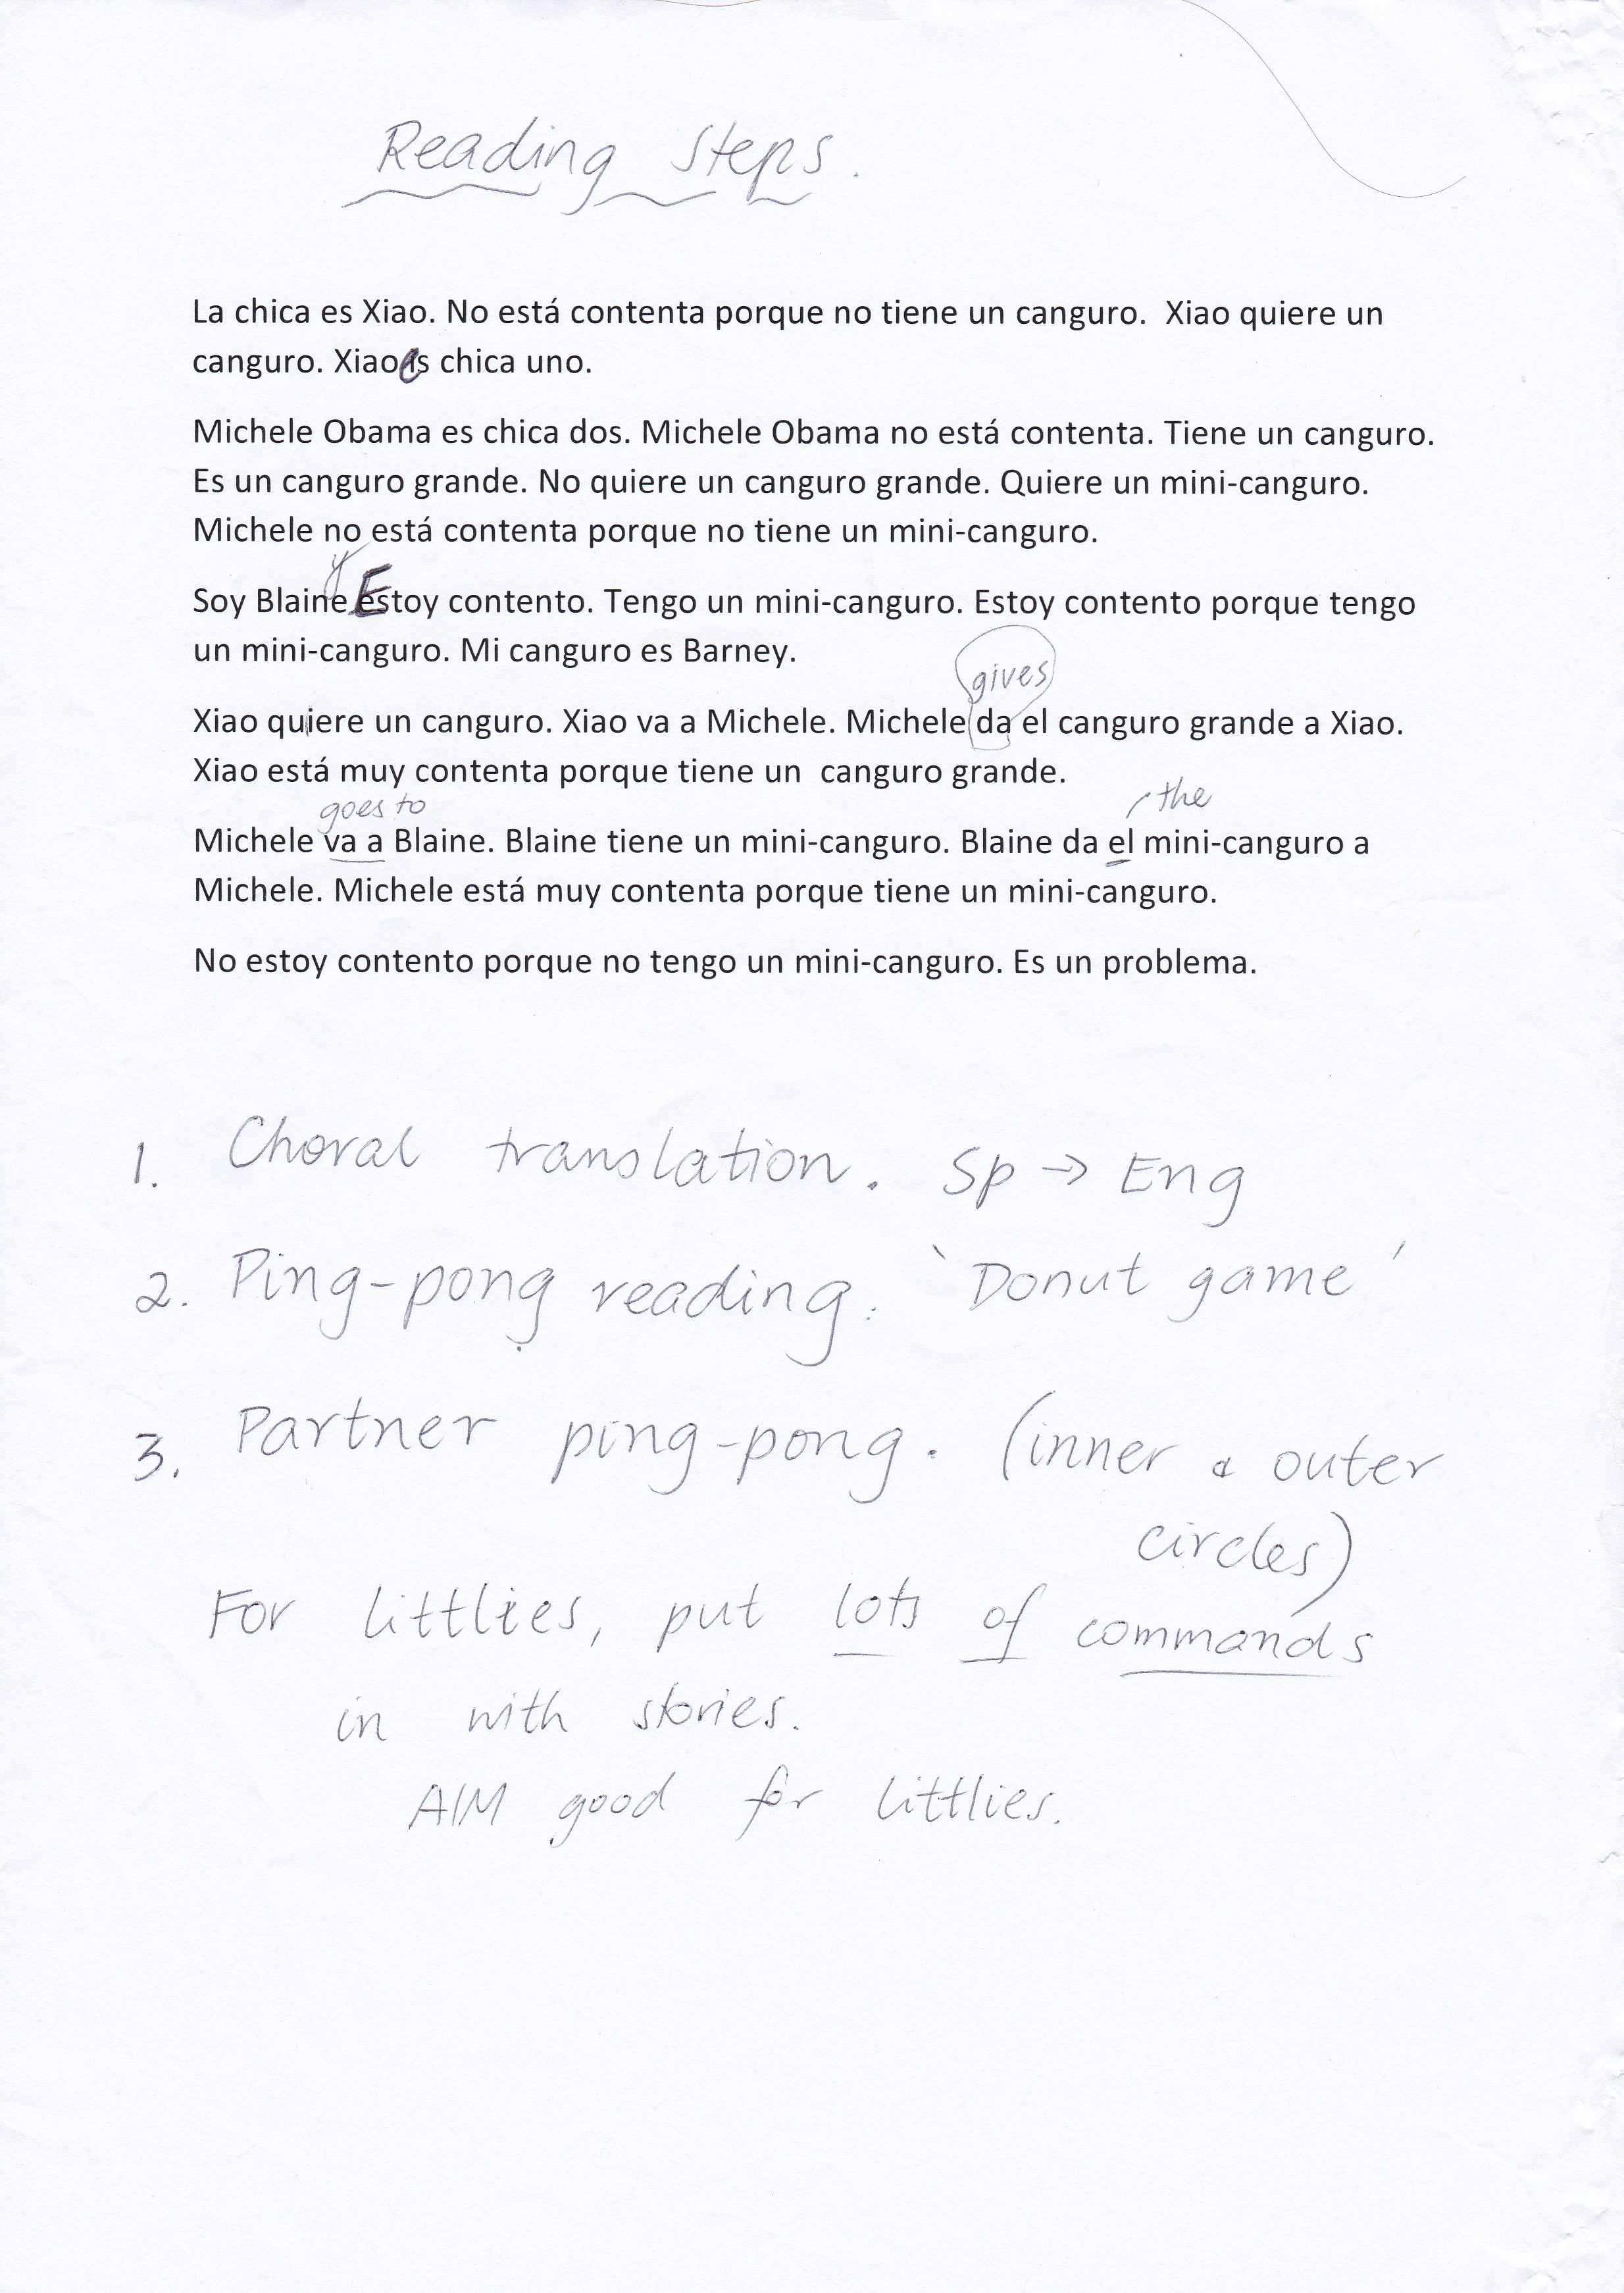 Reading Steps.
La chica es Xiao. No está contenta porque no tiene un canguro.  Xiao quiere un
canguro. Xiao es chica uno.
Michele Obama es chica dos. Michele Obama no está contenta. Tiene un canguro.
Es un canguro grande. No quiere un canguro grande. Quiere un mini-canguro.
Michele no está contenta porque no tiene un mini-canguro.
y
Soy Blaine Estoy contento. Tengo un mini-canguro. Estoy contento porque tengo
un mini-canguro. Mi canguro es Barney.
gives
Xiao quiere un canguro. Xiao va a Michele. Michele da el canguro grande a Xiao.
Xiao está muy contenta porque tiene un  canguro grande.
goes to the
Michele va a Blaine. Blaine tiene un mini-canguro. Blaine da el mini-canguro a
Michele. Michele está muy contenta porque tiene un mini-canguro.
No estoy contento porque no tengo un mini-canguro. Es un problema.
1. Choral translation. Sp → Eng
2. Ping-pong reading. 'Donut game'
3. Partner ping-pong. (inner & outer
circles)
For littlies, put lots of commands
in with stories.
AIM good for littlies.